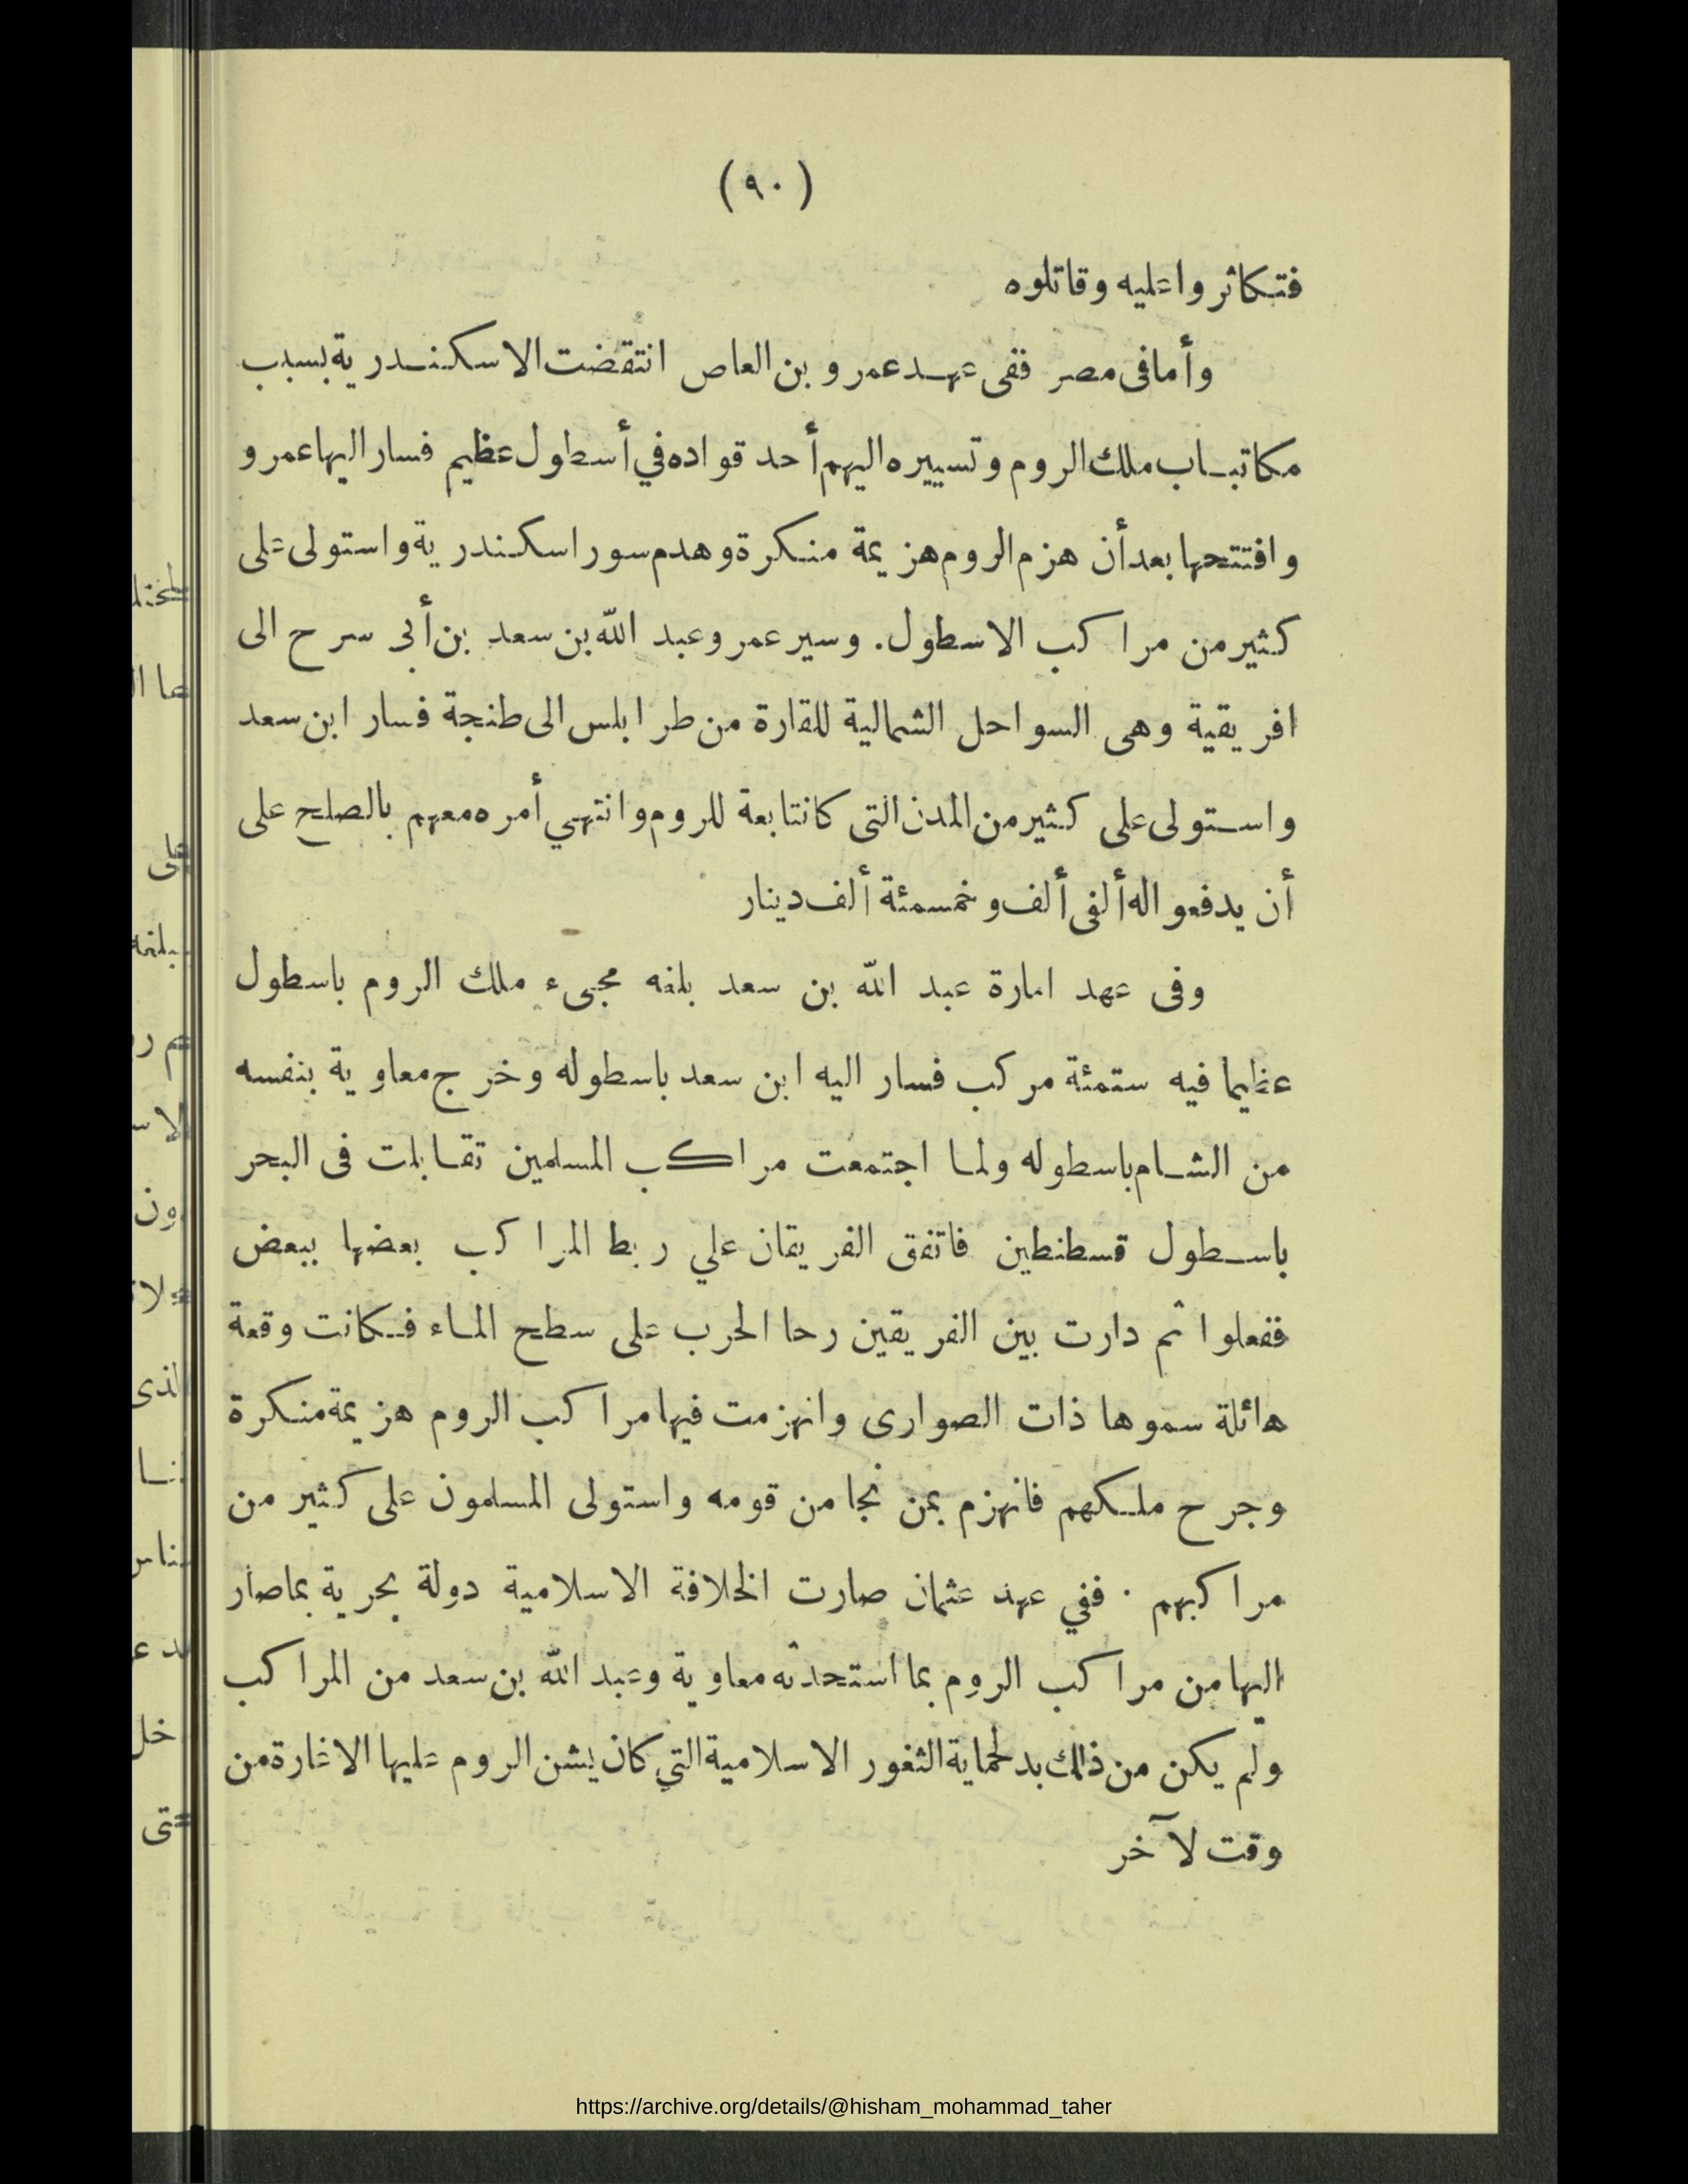 (٩٠)
فتكاثروا عليه وقاتلوه
وأما في مصر ففى عهد عمرو بن العاص انتقضت الاسكندرية بسبب
مكاتباب ملك الروم وتسييره اليهم أحد قواده في أسطول عظيم فسار اليها عمرو
وافتتحها بعد أن هزم الروم هزيمة منكرة وهدم سور اسكندرية واستولى على
كثير من مراكب الاسطول. وسير عمرو عبد الله بن سعد بن أبى سرح الى
افريقية وهى السواحل الشمالية للقارة من طرابلس الى طنجة فسار ابن سعد
واستولى على كثير من المدن التى كانتابعة للروم وانتهي أمره معهم بالصلح على
أن يدفعوا له ألفى ألف وخمسمئة ألف دينار
وفى عهد امارة عبد الله بن سعد بلغه مجىء ملك الروم باسطول
عظيما فيه ستمئة مركب فسار اليه ابن سعد باسطوله وخرج معاوية بنفسه
من الشام باسطوله ولما اجتمعت مراكب المسلمين تقابلت فى البحر
باسطول قسطنطين فاتفق الفريقان علي ربط المراكب بعضها ببعض
ففعلوا ثم دارت بين الفريقين رحا الحرب على سطح الماء فكانت وقعة
هائلة سموها ذات الصوارى وانهزمت فيها مراكب الروم هزيمة منكرة
وجرح ملكهم فانهزم بمن نجا من قومه واستولى المسلمون على كثير من
مراكبهم . ففي عهد عثمان صارت الخلافة الاسلامية دولة بحرية بما صار
اليها من مراكب الروم بما استحدثه معاوية وعبد الله بن سعد من المراكب
ولم يكن من ذلك بد لحماية الثغور الاسلامية التي كان يشن الروم عليها الاغارة من
وقت لآخر
https://archive.org/details/@hisham_mohammad_taher